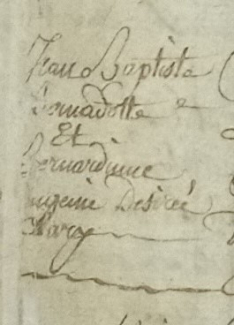 Jean Baptiste
Bernadotte
Et
Bernardinne
eugenie Desireé
Clary